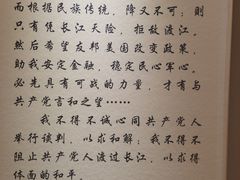 而根据民族传统，降又不可；则
只有凭长江天险，拒敌渡江，
然后希望友邦美国改变政策，
助我安定金融，稳定民心军心。
必先具有可战的力量，才有与
共产党言和之望……
我不得不诚心同共产党人
举行谈判，以求和解；我不得不
阻止共产党人渡过长江，以求得
体面的和平。